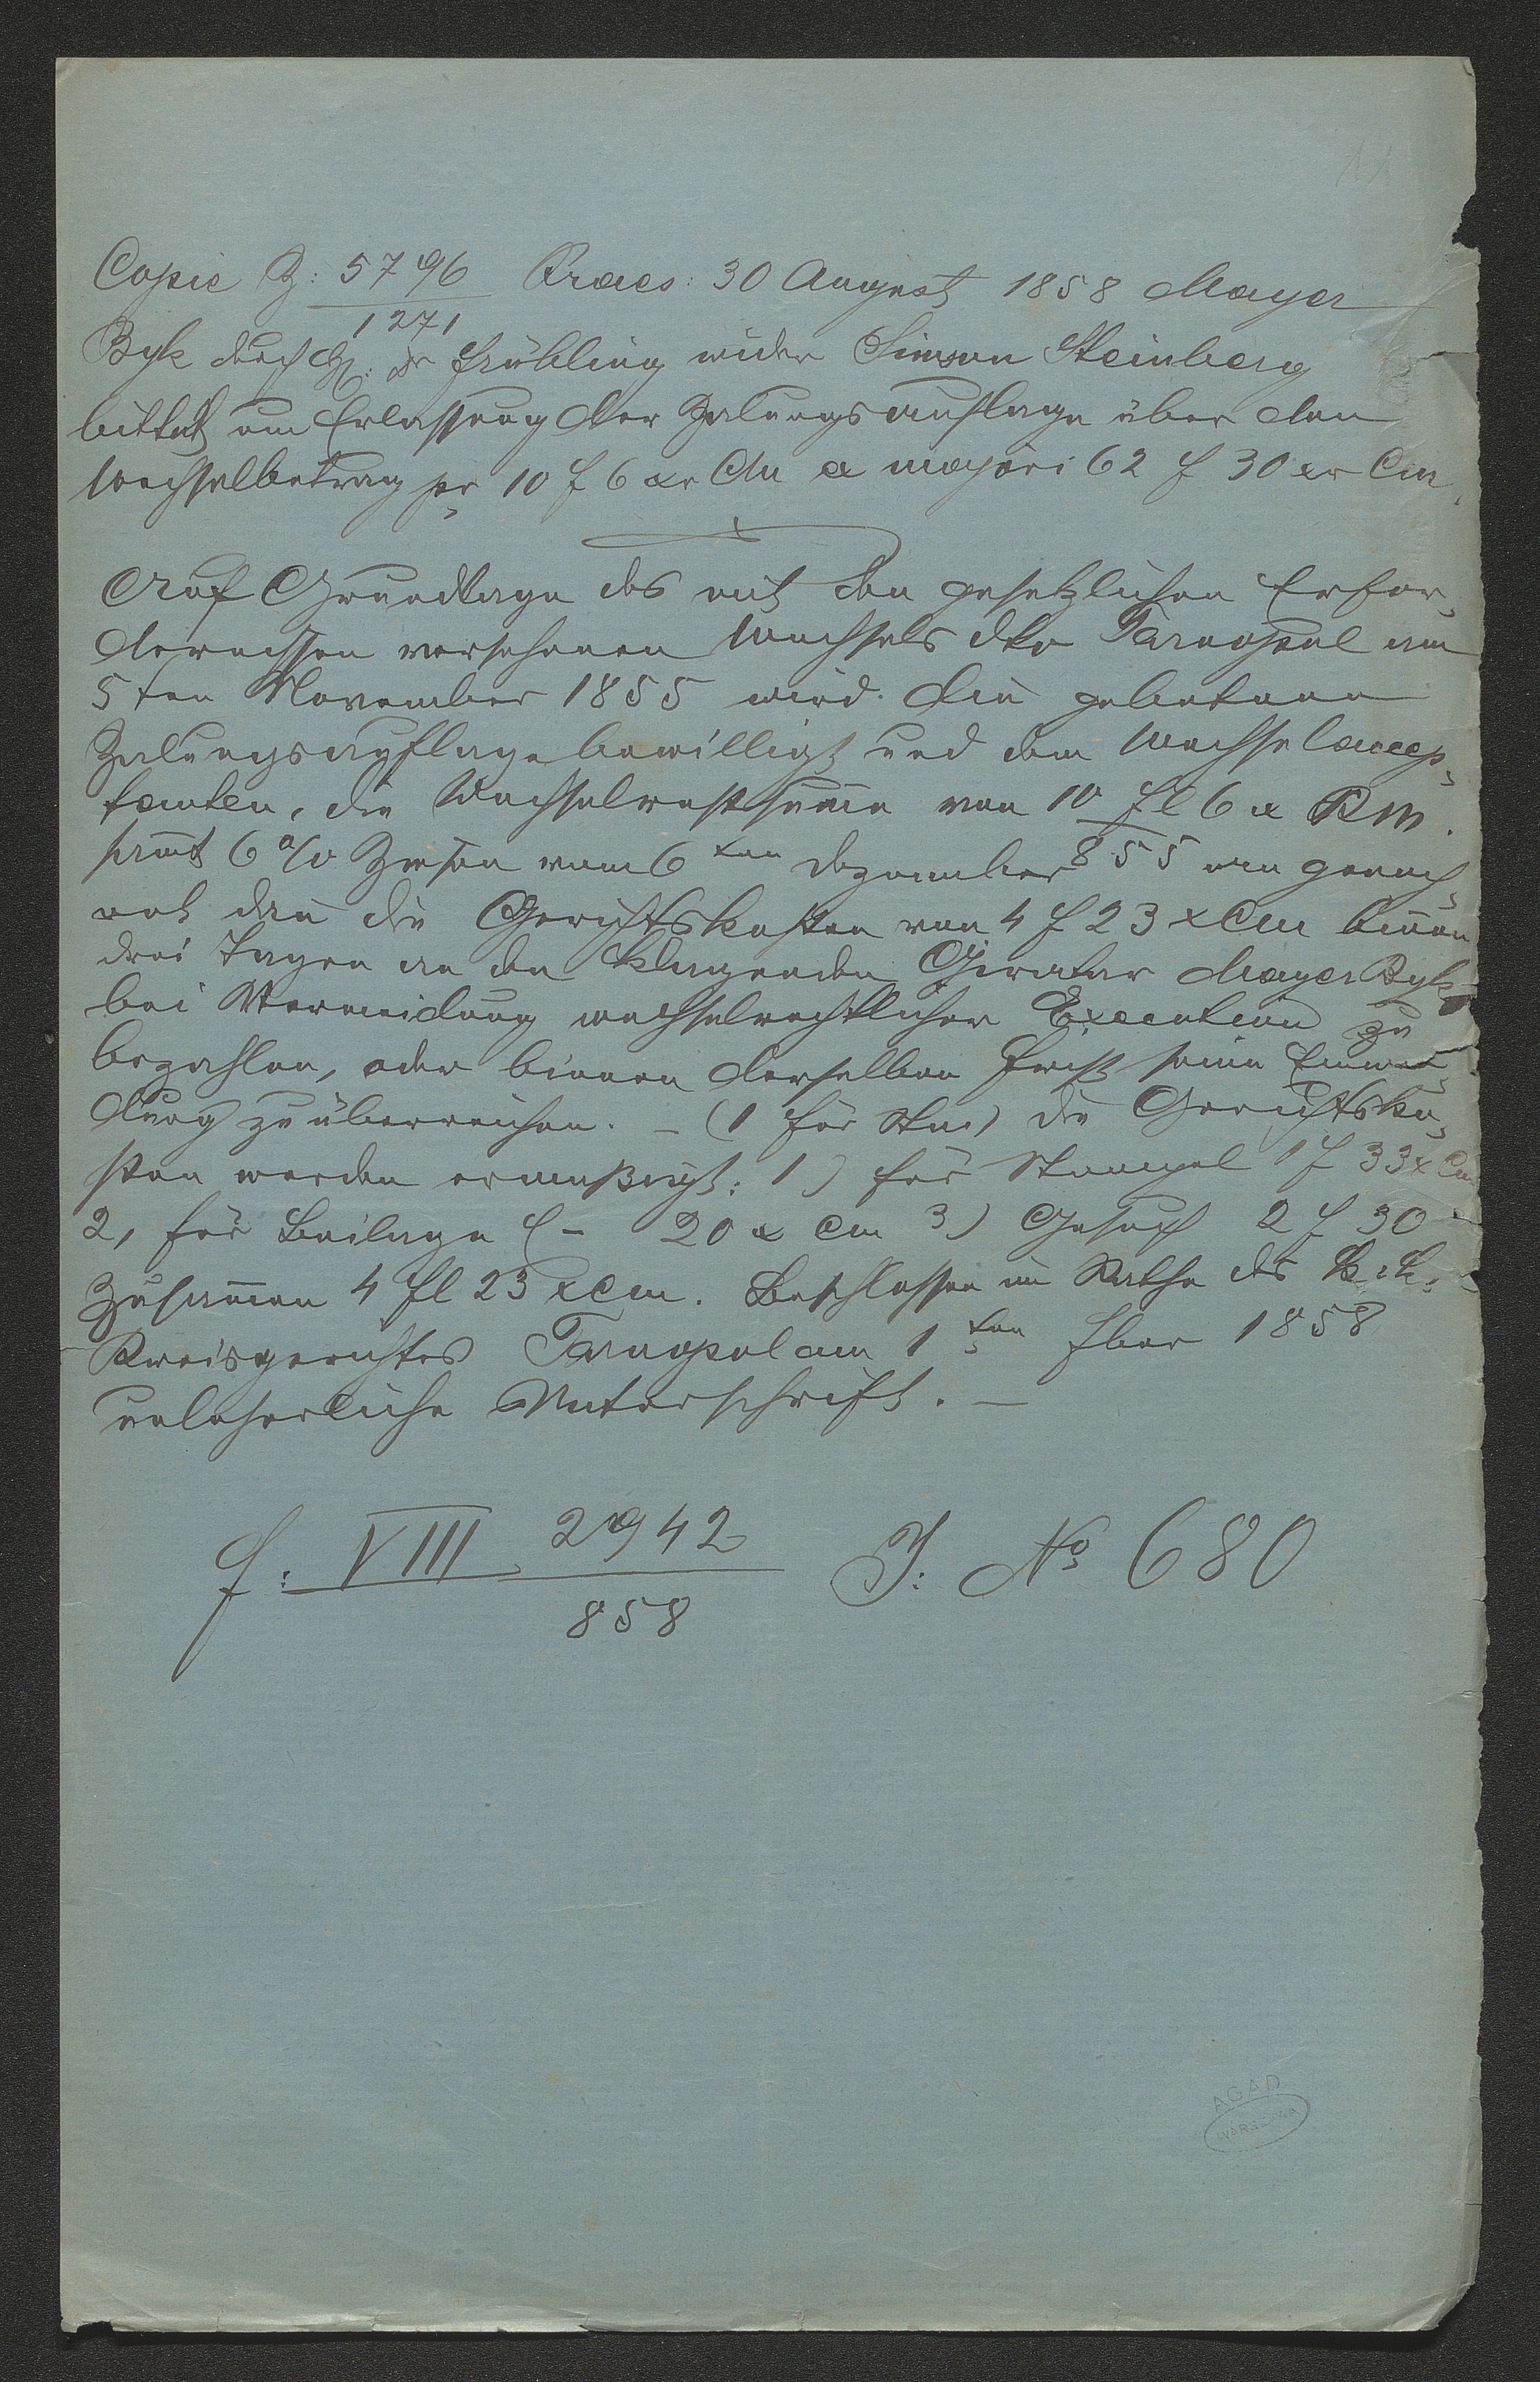 11
Copie Z: 5796 Praes: 30 August 1858 Mayer
1271
Byk durch H: Dr Frühling wider Simson Steinberg
bittet um Erlassung der Zalungsauflage über den
Wechselbetrag pr 10 f 6 xr Cm a majori 62 f 30 xr Cm.
Auf Grundlage des mit den gesetzlichen Erfor-
dernissen versehenen Wechsels dto Tarnopol am
5ten November 1855 wird die gebetene
Zalungsauflage bewilligt und dem Wechselaccep-
tanten, die Wechselrestsumme von 10 fl 6 x KM.
samt 6 % Zinsen vom 6ten Dezember 855 an gerech-
net dan die Gerichtskosten von 4 f 23 x Cm binen
drei Tagen an den klagenden Giratar Mayer Byk
bei Vermeidung wechselrechtlicher Execution zu
bezahlen, oder binnen derselben Frist seine Einwen-
dung zu überreichen. – (1 für ) die Gerichtsko-
sten werden ermäßigt: 1) für Stempel 1 f 33 x Cm
2, für Beilage f – 20 x Cm 3) Gesuch 2 f 30
Zusamen 4 fl 23 x Cm. Beschlossen im Rathe des k: k:
Kreisgerichtes Tarnopol am 1ten 1858
unleserliche Unterschrift. –
f: VIII 2942 J: No 680
858
AGAD
WARSZAWA